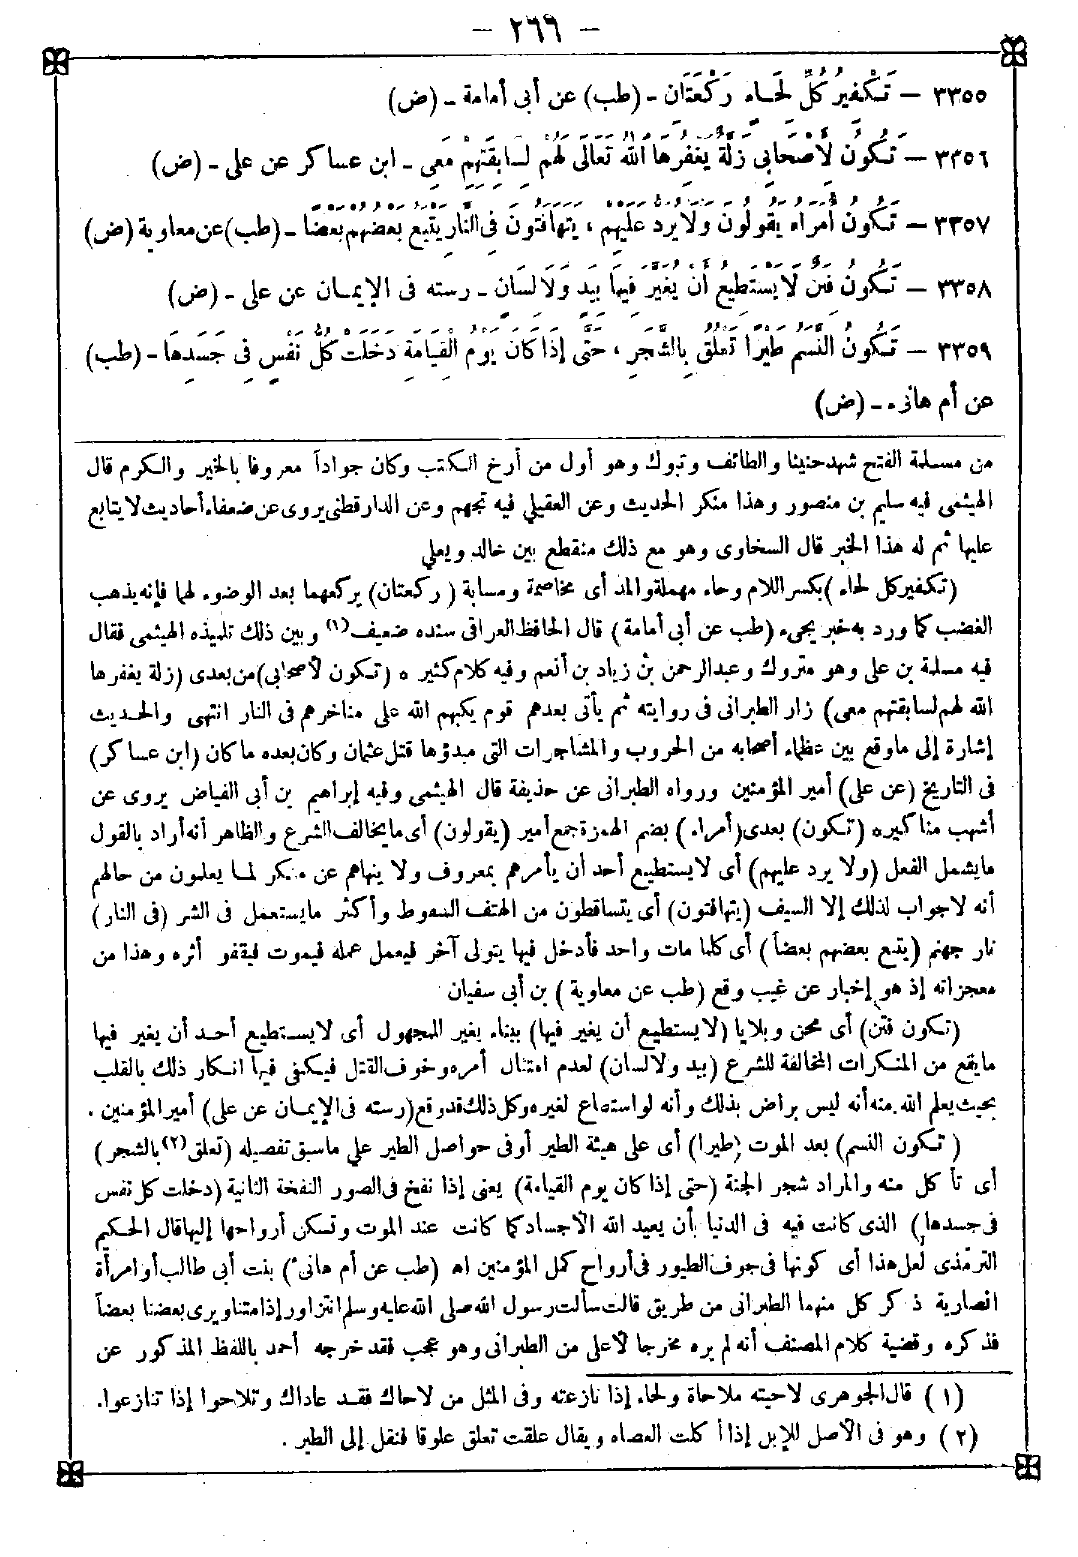 - ٢٦٦ -
٣٣٥٥ - تَكْفِيرُ كُلِّ لِحَاءٍ رَكْعَتَانِ - (طب) عن أبى أمامة - (ض)
٣٣٥٦ - تَكُونُ لِأَصْحَابِي زَلَّةٌ يَغْفِرُهَا اللهُ تَعَالَى لَهُمْ لِسَابِقَتِهِمْ مَعِي - ابن عساكر عن على - (ض)
٣٣٥٧ - تَكُونُ أُمَرَاءُ يَقُولُونَ وَلَا يُرَدُّ عَلَيْهِمْ ، يَتَهَافَتُونَ فِى النَّارِ يَتْبَعُ بَعْضُهُمْ بَعْضًا - (طب) عن معاوية (ض)
٣٣٥٨ - تَكُونُ فِتَنٌ لَا يَسْتَطِيعُ أَنْ يُغَيَّرَ فِيهَا بِيَدٍ وَلَا لِسَانٍ - رسته فى الإيمـان عن على - (ض)
٣٣٥٩ - تَكُونُ النَّسَمُ طَيْرًا تَعْلُقُ بِالشَّجَرِ ، حَتَّى إِذَا كَانَ يَوْمُ الْقِيَامَةِ دَخَلَتْ كُلُّ نَفْسٍ فِى جَسَدِهَا - (طب)
عن أم هانىء - (ض)
من مسلمة الفتح شهد حنينا والطائف وتبوك وهو أول من أرخ الكتب وكان جواداً معروفا بالخير والكرم قال
الهيثمى فيه سليم بن منصور وهذا منكر الحديث وعن العقيلي فيه تجهم وعن الدارقطنى يروى عن ضعفاء أحاديث لا يتابع
عليها ثم له هذا الخبر قال السخاوى وهو مع ذلك منقطع بين خالد ويعلي
(تكفير كل لحاء) بكسر اللام وحاء مهملة والمد أى مخاصمة ومسابة (ركعتان) يركعهما بعد الوضوء لهما فإنه يذهب
الغضب كما ورد به خبر يجىء (طب عن أبى أمامة) قال الحافظ العراقى سنده ضعيف (١) وبين ذلك تلميذه الهيثمى فقال
فيه مسلمة بن على وهو متروك وعبد الرحمن بن زياد بن أنعم وفيه كلام كثير ه (تكون لأصحابى) من بعدى (زلة يغفرها
الله لهم لسابقتهم معى) زار الطبرانى فى روايته ثم يأتى بعدهم قوم يكبهم الله على مناخرهم فى النار انتهى والحديث
إشارة إلى ما وقع بين عظماء أصحابه من الحروب والمشاجرات التى مبدؤها قتل عثمان وكان بعده ما كان (ابن عساكر)
فى التاريخ (عن على) أمير المؤمنين ورواه الطبرانى عن حذيفة قال الهيثمى وفيه إبراهيم بن أبى الفياض يروى عن
أشهب مناكيره (تكون) بعدى (أمراء) بضم الهمزة جمع أمير (يقولون) أى ما يخالف الشرع والظاهر أنه أراد بالقول
ما يشمل الفعل (ولا يرد عليهم) أى لا يستطيع أحد أن يأمرهم بمعروف ولا ينهاهم عن منكر لما يعلمون من حالهم
أنه لا جواب لذلك إلا السيف (يتهافتون) أى يتساقطون من الهتف السقوط وأكثر ما يستعمل فى الشر (فى النار)
نار جهنم (يتبع بعضهم بعضاً) أى كلما مات واحد فأدخل فيها يتولى آخر فيعمل عمله فيموت فيقفو أثره وهذا من
معجزاته إذ هو إخبار عن غيب وقع (طب عن معاوية) بن أبى سفيان
(تكون فتن) أى محن وبلايا (لا يستطيع أن يغير فيها) ببناء يغير للمجهول أى لا يستطيع أحد أن يغير فيها
ما يقع من المنكرات المخالفة للشرع (بيد ولا لسان) لعدم امتثال أمره وخوف القتل فيكفى فيها انكار ذلك بالقلب
بحيث يعلم الله منه أنه ليس براض بذلك وأنه لو استطاع لغيره وكل ذلك قد وقع (رسته فى الإيمـان عن على) أمير المؤمنين .
(تكون النسم) بعد الموت (طيرا) أى على هيئة الطير أو فى حواصل الطير علي ما سبق تفصيله (تعلق (٢) بالشجر)
أى تأكل منه والمراد شجر الجنة (حتى إذا كان يوم القيامة) يعنى إذا نفخ فى الصور النفخة الثانية (دخلت كل نفس
فى جسدها) الذى كانت فيه فى الدنيا بأن يعيد الله الأجساد كما كانت عند الموت وتسكن أرواحها إليها قال الحكيم
الترمذى لعل هذا أى كونها فى جوف الطيور فى أرواح كمل المؤمنين اه (طب عن أم هانىء) بنت أبى طالب أو امرأة
انصارية ذكر كل منهما الطبرانى من طريق قالت سألت رسول الله صلى الله عليه وسلم انتزاور إذا متنا ويرى بعضنا بعضاً
فذكره وقضية كلام المصنف أنه لم يره مخرجا لأعلى من الطبرانى وهو عجب فقد خرجه أحمد باللفظ المذكور عن
(١) قال الجوهرى لاحيته ملاحاة ولحاء إذا نازعته وفى المثل من لاحاك فقد عاداك وتلاحوا إذا تنازعوا.
(٢) وهو فى الأصل للإبل إذا أكلت العصاه ويقال علقت تعلق علوقا فنقل إلى الطير .